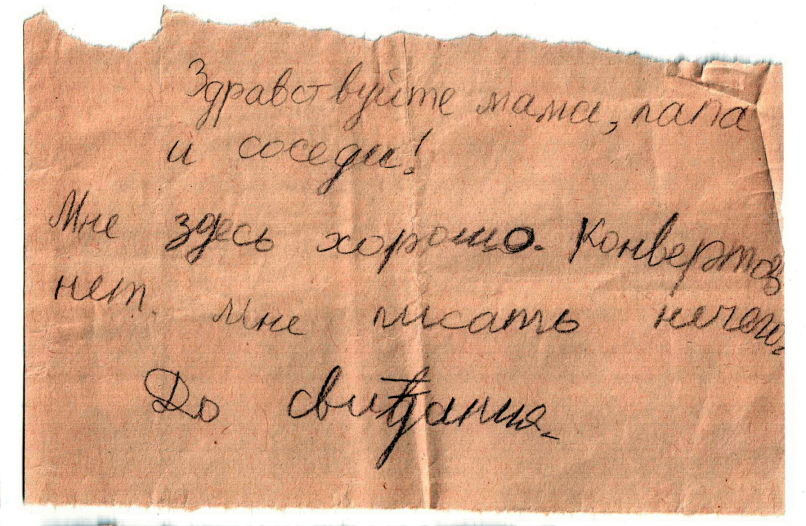 Здравствуйте мама, папа
и соседи!
Мне здесь хорошо. Конвертов
нет. Мне писать нечего.
До свидания.